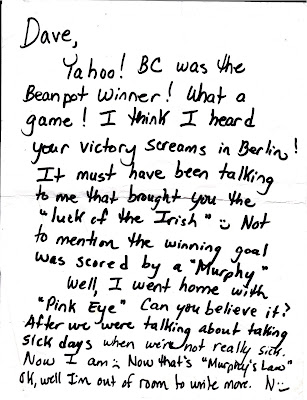 Dave,
Yahoo! BC was the
Beanpot Winner! What a
game! I think I heard
your victory screams in Berlin!
It must have been talking
to me that brought you the
"luck of the Irish" :) Not
to mention the winning goal
was scored by a "Murphy"
Well, I went home with
"Pink Eye" Can you believe it?
After we were talking about taking
sick days when we're not really sick.
Now I am :( Now that's "Murphy's Law"
OK, well I'm out of room to write more. N :)